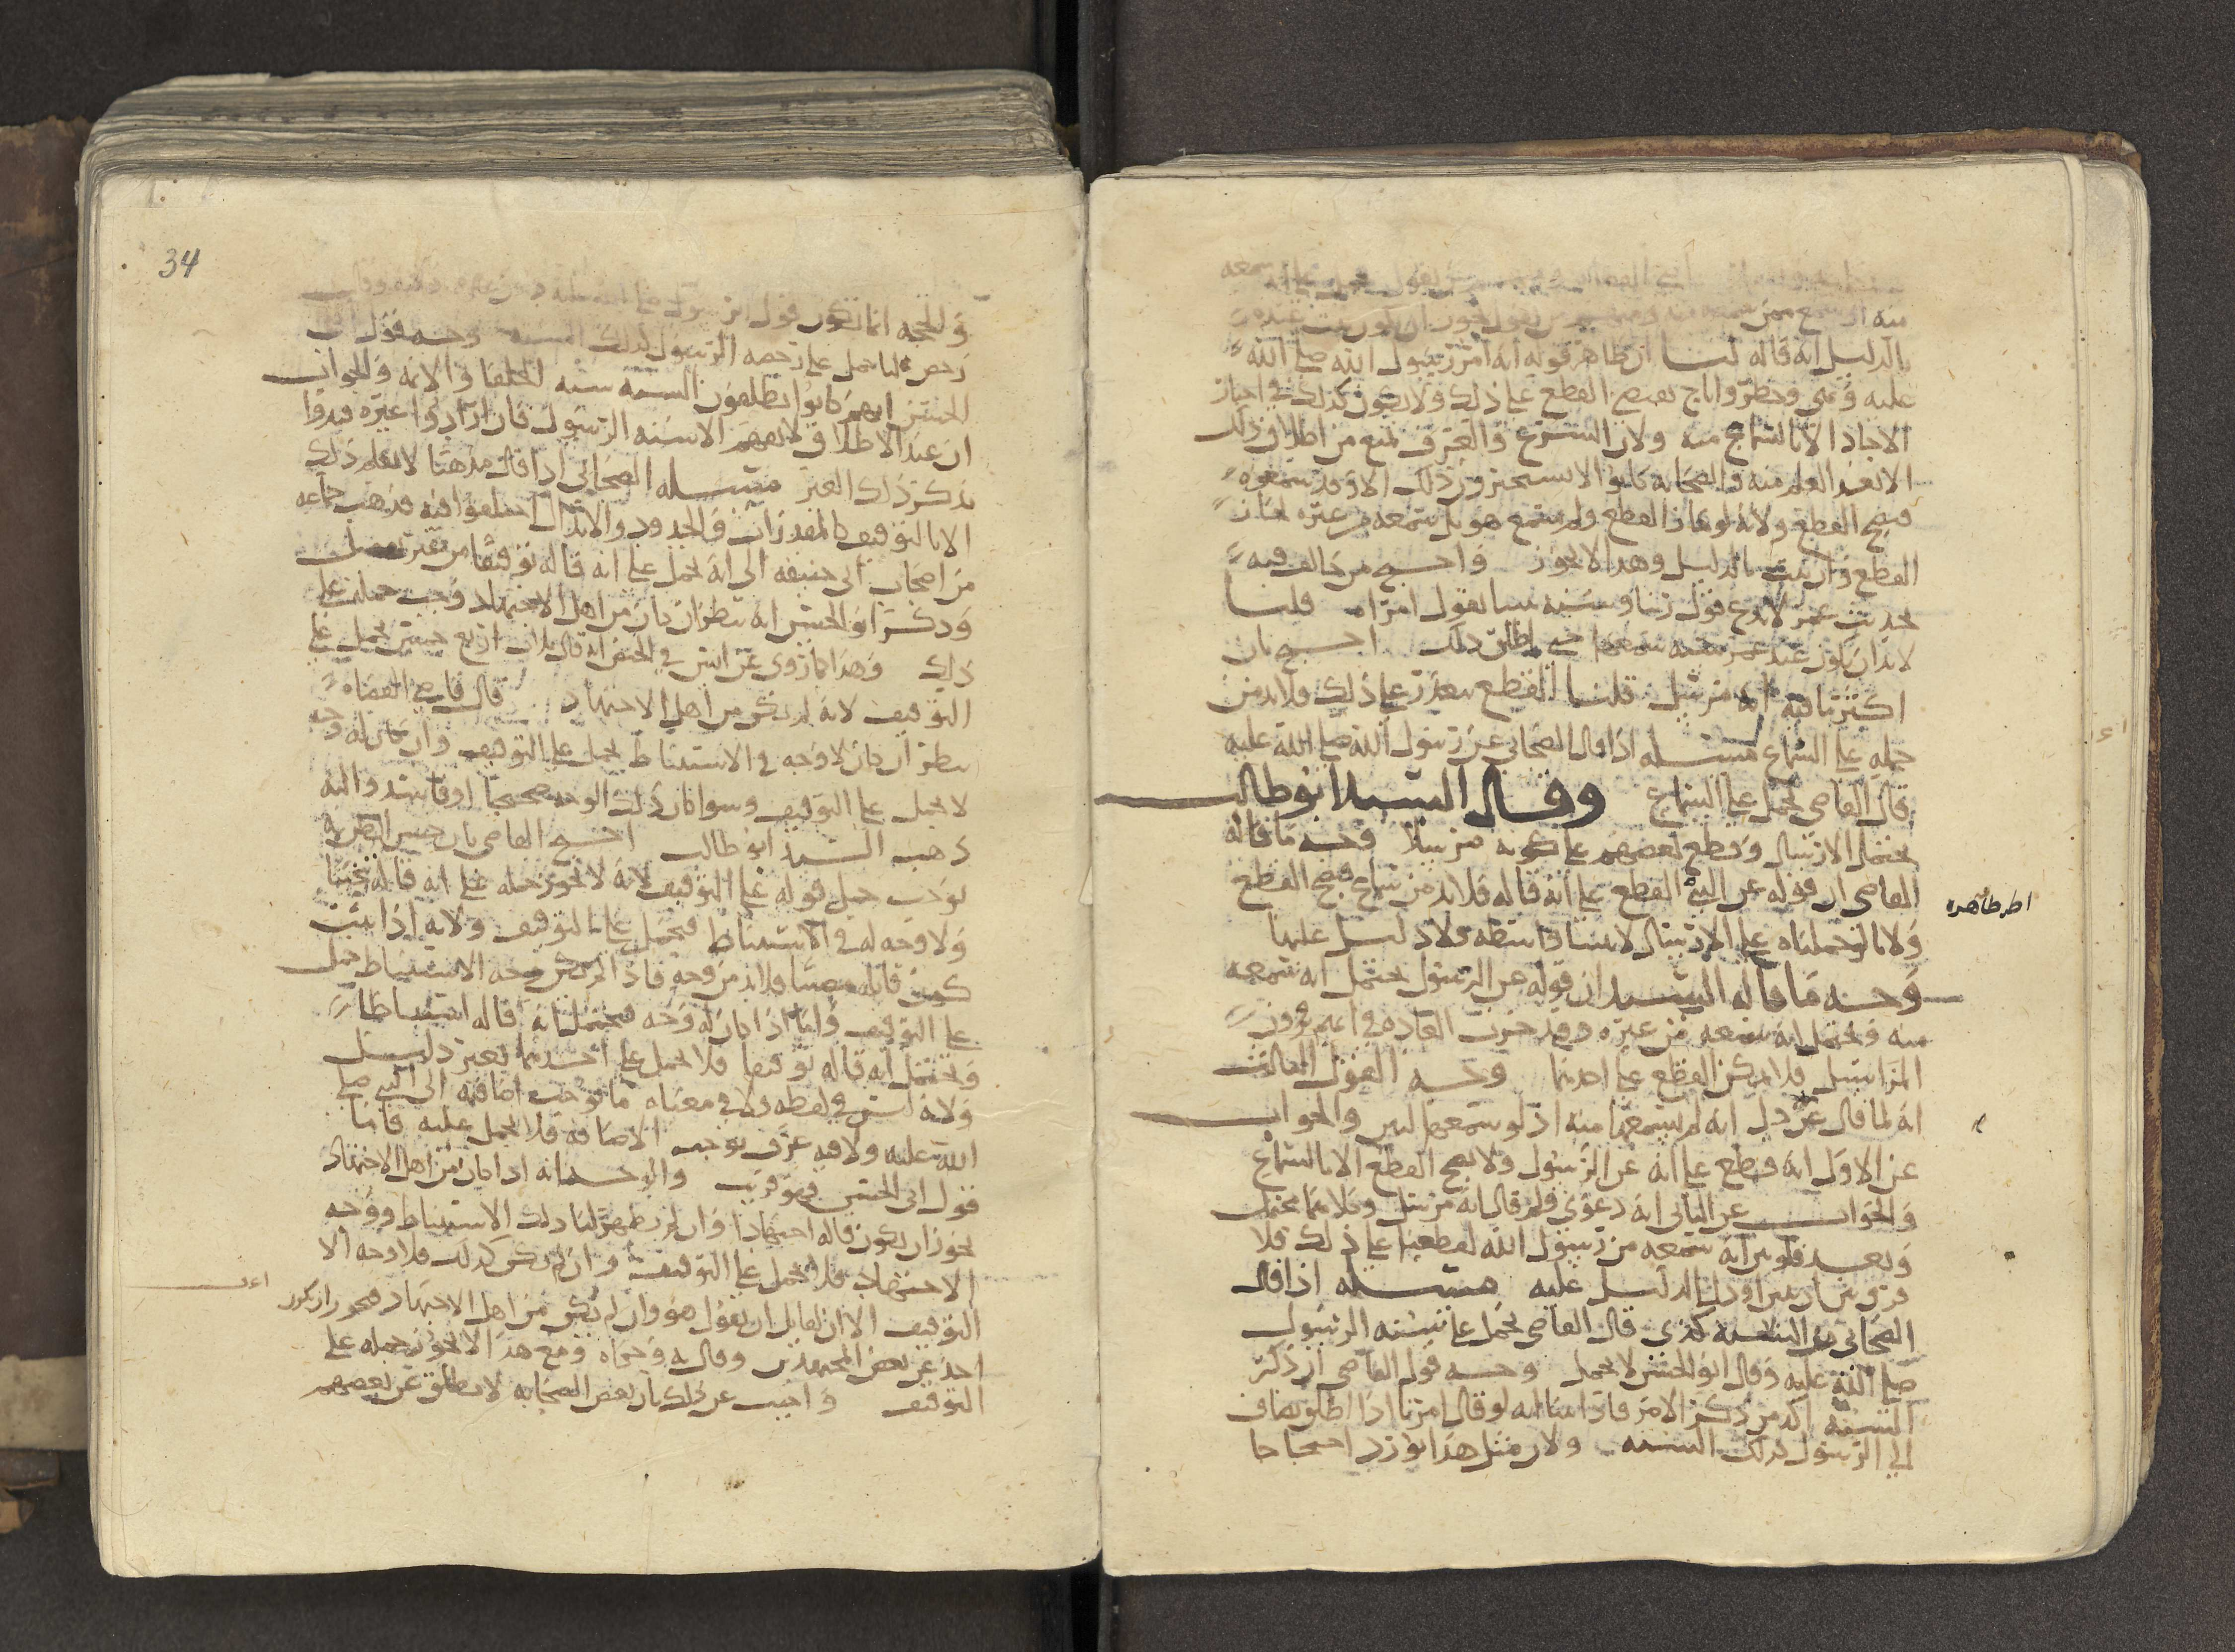 بالدليل انه قاله لنا ان ظاهر قوله انه امر رسول الله صلى الله
عليه ونهى وحظر واباح يقتضي القطع على ذلك ولا يكون كذلك في اخبار
الاحاد الا بالسماع منه ولان الشرع والعرف تمنع من اطلاق ذلك
الا بعد العلم منه والصحابه كانوا لا يستجيزون ذلك الا وقد سمعوه
فصح القطع ولانه لو جاز القطع ولم يسمع هو بل سمعه من غيره لجاز
القطع وان ثبت بالدليل وهذا لا يجوز واحتج من خالف فيه
بحديث عمر لا ندع قول ربنا وسنه نبينا بقول امراه قلنا
لابد ان يكون عند عمر سمعها حتى اطلق ذلك احتج بان
اكثر ما فيه انه مرسل قلنا القطع يتعذر على ذلك ولابد من
حمله على السماع مسله اذا قال الصحابي عن رسول الله صلى الله عليه
قال القاضي يحمل على السماع وقال السيد ابو طالب
يحتمل الارسال وقطع بعضهم على كونه مرسلا وجه ما قاله
القاضي ان قوله عن النبي القطع على انه قاله فلابد من سماع فصح القطع
ولانا لو حملناه على الارسال لاثبتنا واسطه ولا دليل عليها
وجه ما قاله السيد ان قوله عن الرسول يحتمل انه سمعه
منه ويحتمل انه سمعه من غيره وقد جرت العاده في انهم يروون
المراسيل فلا يمكن القطع على احدهما وجه القول الثالث
انه لما قال عن دل انه لم يسمعها منه اذ لو سمعها لبين والجواب
عن الاول انه قطع على انه عن الرسول ولا يصح القطع الا بالسماع
والجواب عن الثاني انه دعوى فلم قال انه مرسل وكلاهما محتمل
وبعد فلو بين انه سمعه من رسول الله لقطعنا على ذلك فلا
فرق بين ان يبين او دل الدليل عليه مسله اذا قال
الصحابي من السنه كذى قال القاضي يحمل على سنه الرسول
صلى الله عليه وقال ابو الحسن لا يحمل وجه قول القاضي ان ذكر
السنه اكد من ذكر الامر فاذا بينا انه لو قال امرنا اذا اطلق يضاف
الى الرسول كذلك السنه ولان مثل هذا يورد احتجاجا
34
والحجه انما تكون قول الرسول
رخص لنا يحمل على رخصه الرسول كذلك السنه وجه قول ابي
الحسن انهم كانوا يطلقون السنه سنه الخلفا والائمه والجواب
ان عند الاطلاق لا يفهم الا سنه الرسول فان ارادوا غيره قيدوا
بذكر ذلك الغير مسله الصحابي اذا قال مذهبا لا يعلم ذلك
الا بالتوقيف كالمقدرات والحدود والابدال اختلفوا فيه فذهب جماعه
من اصحاب ابي حنيفه الى انه يحمل على انه قاله توقيفا من غير تفصيل
وذكر ابو الحسن انه ينظر ان كان من اهل الاجتهاد وجب حمله على
ذلك وهذا كما روى عن انس في الحيض انه قال ثلاث اربع خمس يحمل على
التوقيف لانه لم يكن من اهل الاجتهاد قال قاضي القضاه
ينظر ان كان لا وجه في الاستنباط يحمل على التوقيف وان كان له وجه
لا يحمل على التوقيف وسوا كان ذلك الوجه صحيحا او فاسدا واليه
ذهب السيد ابو طالب احتج القاضي بان حسن الظن به
يوجب حمل قوله على التوقيف لانه لا يجوز حمله على انه قاله تبخيتا
ولا وجه له في الاستنباط فيحمل على التوقيف ولانه اذا ثبت
كون قائله مصيبا فلابد من وجه فاذا لم يكن وجه الاستنباط حمل
على التوقيف وانما اذا كان له وجه فيحتمل انه قاله استنباطا
ويحتمل انه قاله توقيفا فلا يحمل على احدهما بغير دليل
ولانه ليس في لفظه ولا في معناه ما يوجب اضافته الى النبي صلى
الله عليه ولا فيه عرف يوجب الاضافه فلا يحمل عليه فاما
قول ابي الحسن فهو قريب والوجه انه اذا كان من اهل الاجتهاد
يجوز ان يكون قاله اجتهادا وان لم يظهر لنا ذلك الاستنباط ووجه
الاجتهاد فلا يحمل على التوقيف وان لم يكن كذلك فلا وجه الا
التوقيف الا ان لقايل ان يقول هو وان لم يكن من اهل الاجتهاد فيجوز ان يكون
اخذ عن بعض المجتهدين وقال به وحكاه ومع هذا لا يجوز حمله على
التوقيف واجيب عن ذلك بان بعض الصحابه لا يطلق عن بعضهم